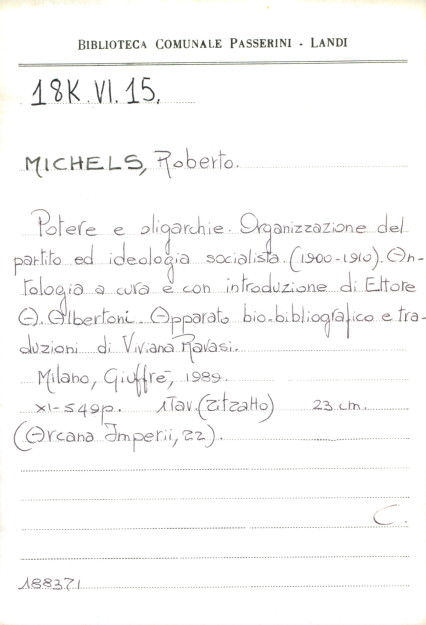 BIBLIOTECA COMUNALE PASSERINI - LANDI
18K.VI.15.
MICHELS, Roberto.
Potere e oligarchie. Organizzazione del
partito ed ideologia socialista. (1900-1910). An-
tologia a cura e con introduzione di Ettore
A. Albertoni. Apparato bio-bibliografico e tra-
duzioni di Viviana Ravasi.
Milano, Giuffrè, 1989.
XI-549p. 1 Tav. (ritratto) 23 cm.
(Arcana Imperii, 22).
C.
188371